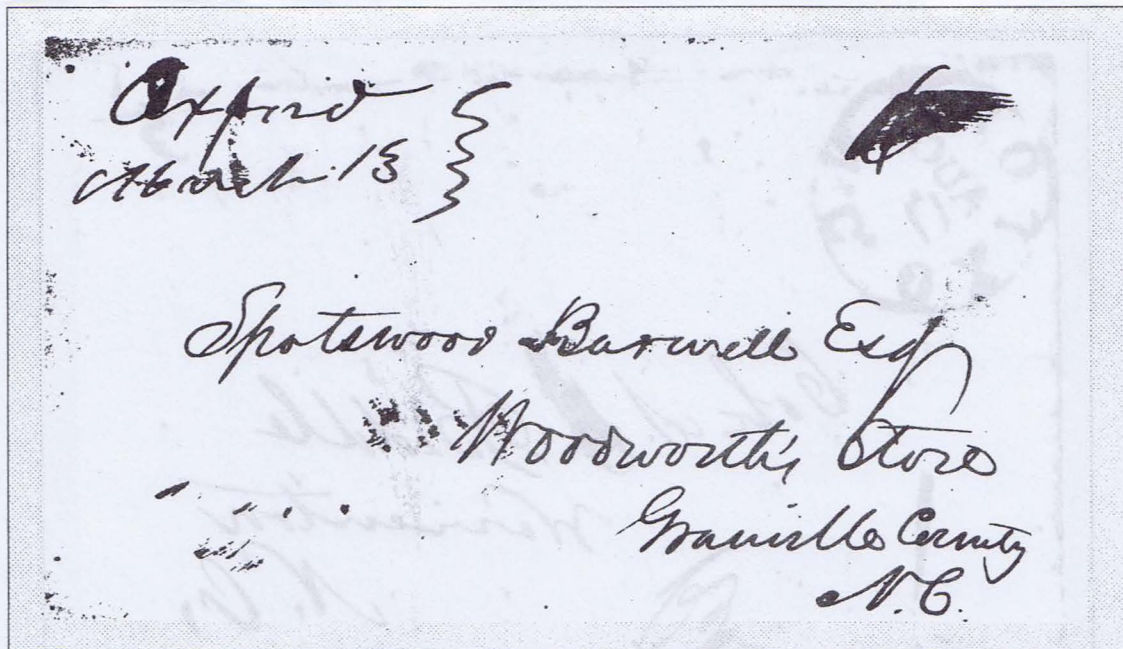 Oxford
March 13
Spotswood Burwell Esq
Woodworth's Store
Granville County
N.C.